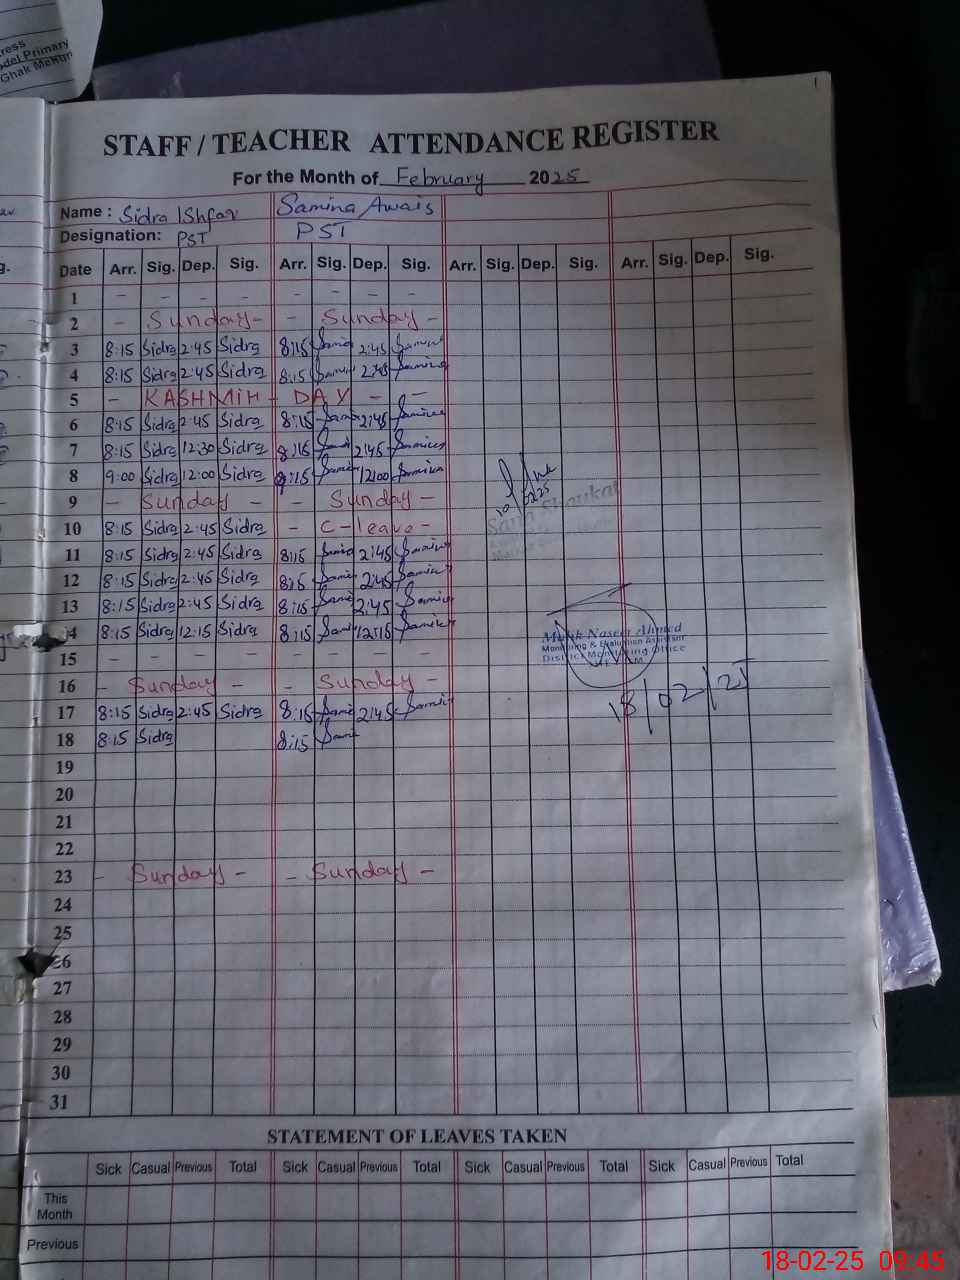 ress
del Primary
Ghak
STAFF / TEACHER ATTENDANCE REGISTER
For the Month of February 2025
Name : Sidra IShfaq Samina Awais
Designation: PST PST
Date Arr. Sig. Dep. Sig. Arr. Sig. Dep. Sig. Arr. Sig. Dep. Sig. Arr. Sig. Dep. Sig.
1 - - - - - - - -
2 - Sunday - - Sunday -
3 8:15 Sidra 2:45 Sidra 8:15 2:45
4 8:15 Sidra 2:45 Sidra 8:15 2:45 Samina
5 - KASHMIH - DAY - -
6 8:15 Sidra 2:45 Sidra 8:15 2:45
7 8:15 Sidra 12:30 Sidra 8:15 2:45
8 9:00 Sidra 12:00 Sidra 9:15 12:00 Samina
9 - Sunday - - Sunday -
10 8:15 Sidra 2:45 Sidra - C-leave -
11 8:15 Sidra 2:45 Sidra 8:15 2:45
12 8:15 Sidra 2:45 Sidra 8:15 2:45
13 8:15 Sidra 2:45 Sidra 8:15 2:45
14 8:15 Sidra 12:15 Sidra 8:15 12:15
15 - - - - - - - -
16 - Sunday - - Sunday -
17 8:15 Sidra 2:45 Sidra 8:15 2:45
18 8:15 Sidra 8:15
19
20
21
22
23 - Sunday - - Sunday -
24
25
26
27
28
29
30
31
Sana Shoukat
Malik Naseer Ahmed
Monitoring & Evaluation Assistant
District Monitoring Office
18/02/25
STATEMENT OF LEAVES TAKEN
Sick Casual Previous Total Sick Casual Previous Total Sick Casual Previous Total Sick Casual Previous Total
This
Month
Previous
18-02-25 09:45